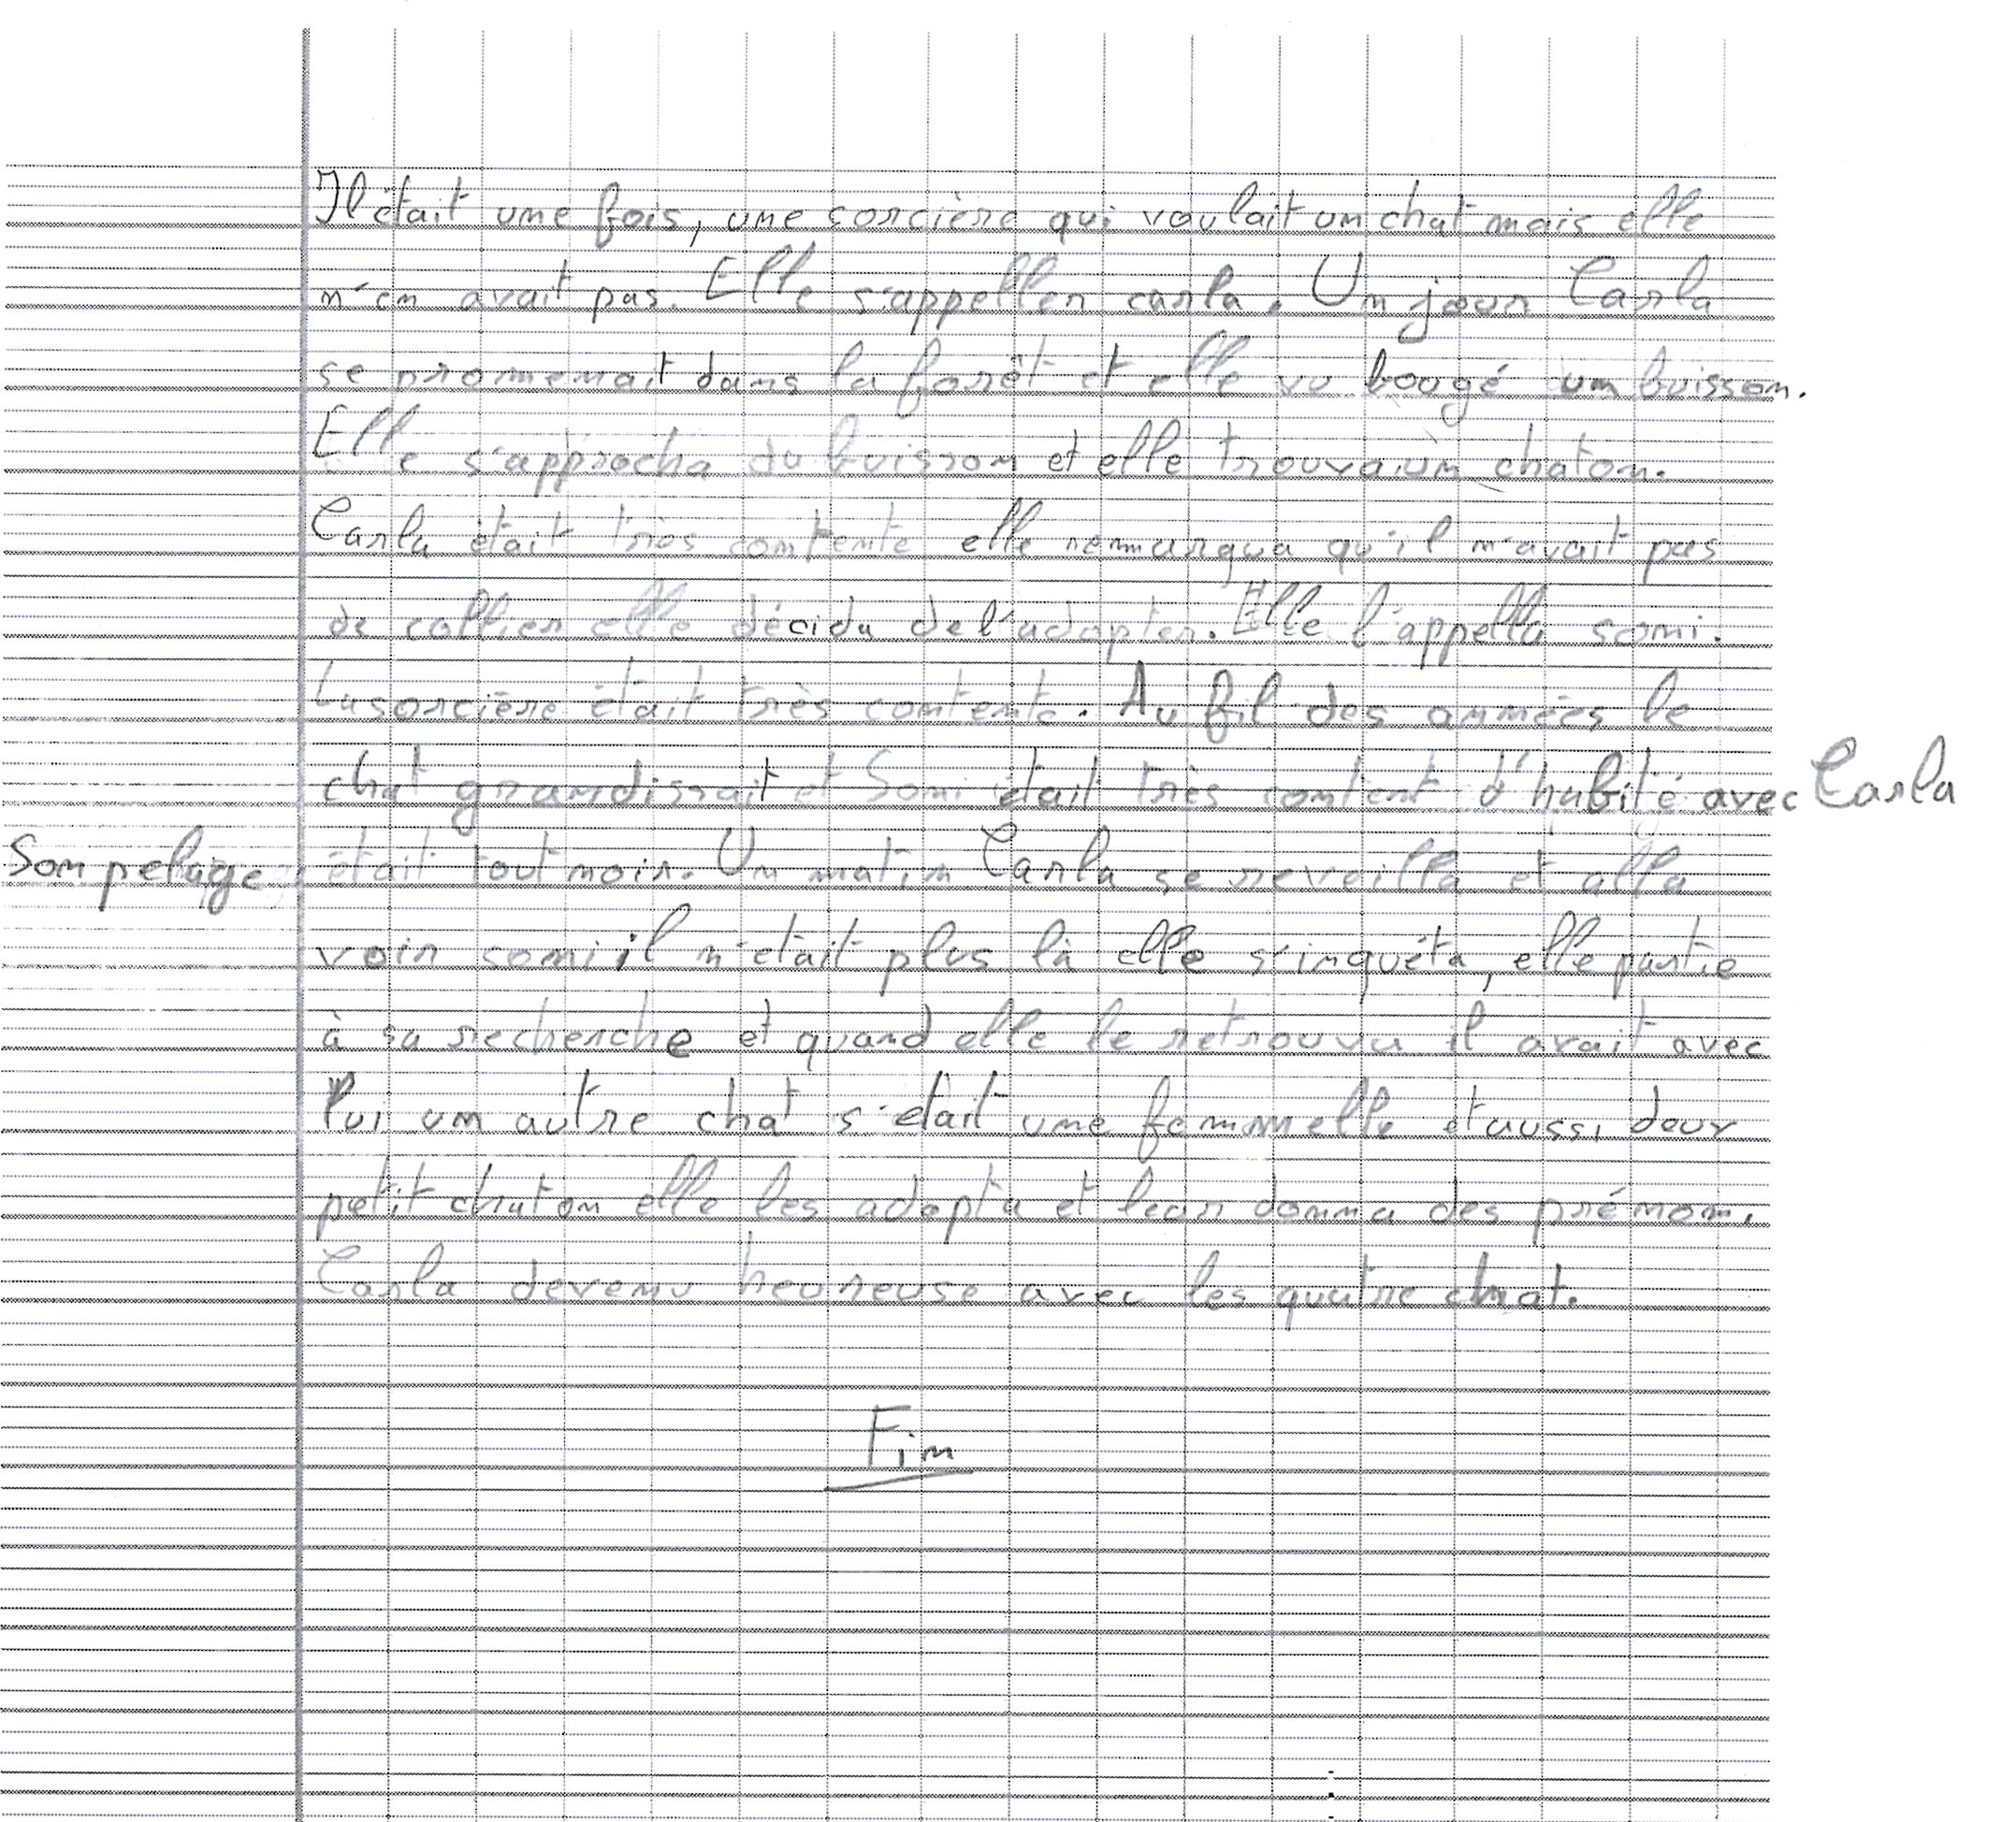 Il était une fois, une sorcière qui voulait un chat mais elle
n'en avait pas. Elle s'appeller carla. Un jour Carla
se promenait dans la forêt et elle vu bougé un buisson.
Elle s'approcha du buisson et elle trouva un chaton.
Carla était très contente elle remarqua qu'il n'avait pas
de collier elle décida de l'adopter. Elle l'appella somi.
La sorcière était très contente. Au fil des années le
chat grandissait et Somi était très content d'habité avec Carla
Son pelage était tout noir. Un matin Carla se reveilla et alla
voir somi il n'était plus là elle s'inquéta, elle partie
à sa recherche et quand elle le retrouva il avait avec
lui un autre chat s'était une femmelle et aussi deux
petit chaton elle les adopta et leur donna des prénom.
Carla devenu heureuse avec les quatre chat.
Fin